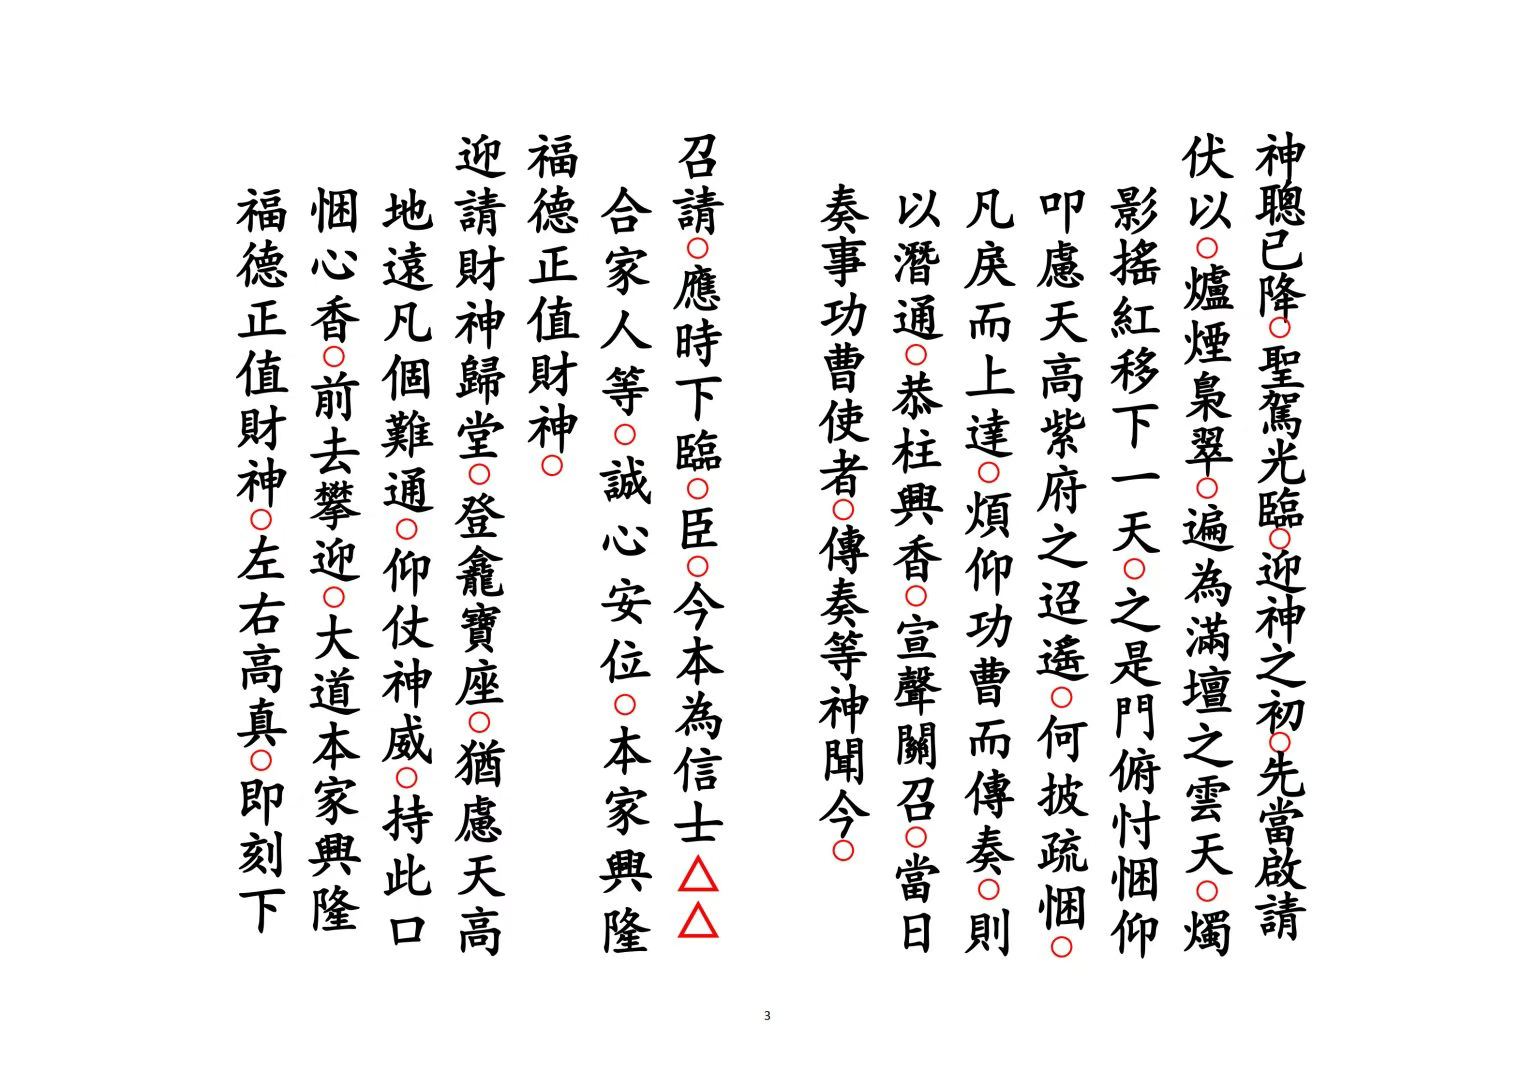 神聰已降○聖駕光臨○迎神之初○先當啟請
伏以○爐煙裊翠○遍為滿壇之雲天○燭
影搖紅移下一天○之是門俯忖悃仰
叩慮天高紫府之迢遙○何披疏悃○
凡戾而上達○煩仰功曹而傳奏○則
以潛通○恭炷興香○宣聲關召○當日
奏事功曹使者○傳奏等神聞今○
召請○應時下臨○臣○今本為信士△△
合家人等○誠心安位○本家興隆
福德正值財神○
迎請財神歸堂○登龕寶座○猶慮天高
地遠凡個難通○仰仗神威○持此口
悃心香○前去攀迎○大道本家興隆
福德正值財神○左右高真○即刻下
3